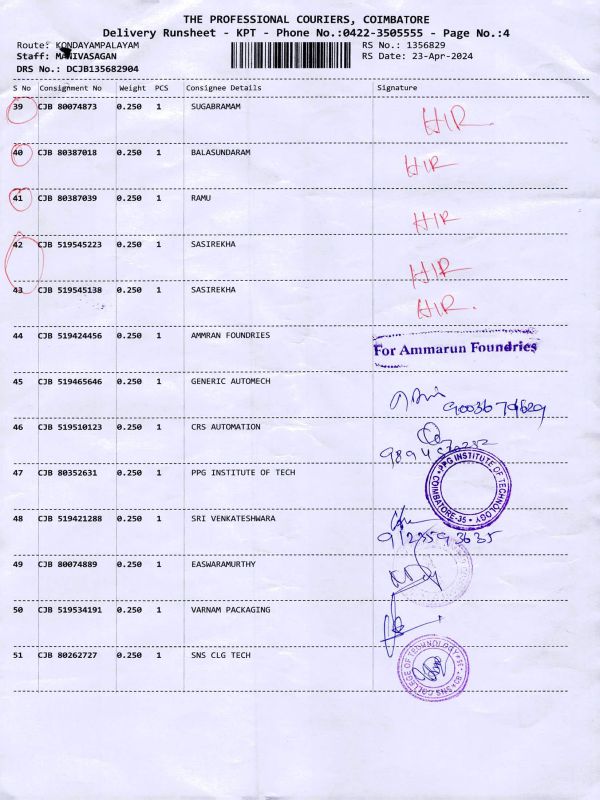 THE PROFESSIONAL COURIERS, COIMBATORE
Delivery Runsheet - KPT - Phone No.:0422-3505555 - Page No.:4
Route: KONDAYAMPALAYAM RS No.: 1356829
Staff: MANIVASAGAN RS Date: 23-Apr-2024
DRS No.: DCJB135682904
S No Consignment No Weight PCS Consignee Details Signature
39 CJB 80074873 0.250 1 SUGABRAMAM HIR.
40 CJB 80387018 0.250 1 BALASUNDARAM HIR
41 CJB 80387039 0.250 1 RAMU HIR
42 CJB 519545223 0.250 1 SASIREKHA HIR
43 CJB 519545138 0.250 1 SASIREKHA HIR.
44 CJB 519424456 0.250 1 AMMRAN FOUNDRIES For Ammarun Foundries
45 CJB 519465646 0.250 1 GENERIC AUTOMECH
46 CJB 519510123 0.250 1 CRS AUTOMATION
47 CJB 80352631 0.250 1 PPG INSTITUTE OF TECH PPG INSTITUTE OF TECHNOLOGY COIMBATORE-35
48 CJB 519421288 0.250 1 SRI VENKATESHWARA
9123593635
49 CJB 80074889 0.250 1 EASWARAMURTHY
50 CJB 519534191 0.250 1 VARNAM PACKAGING
51 CJB 80262727 0.250 1 SNS CLG TECH SNS COLLEGE OF TECHNOLOGY